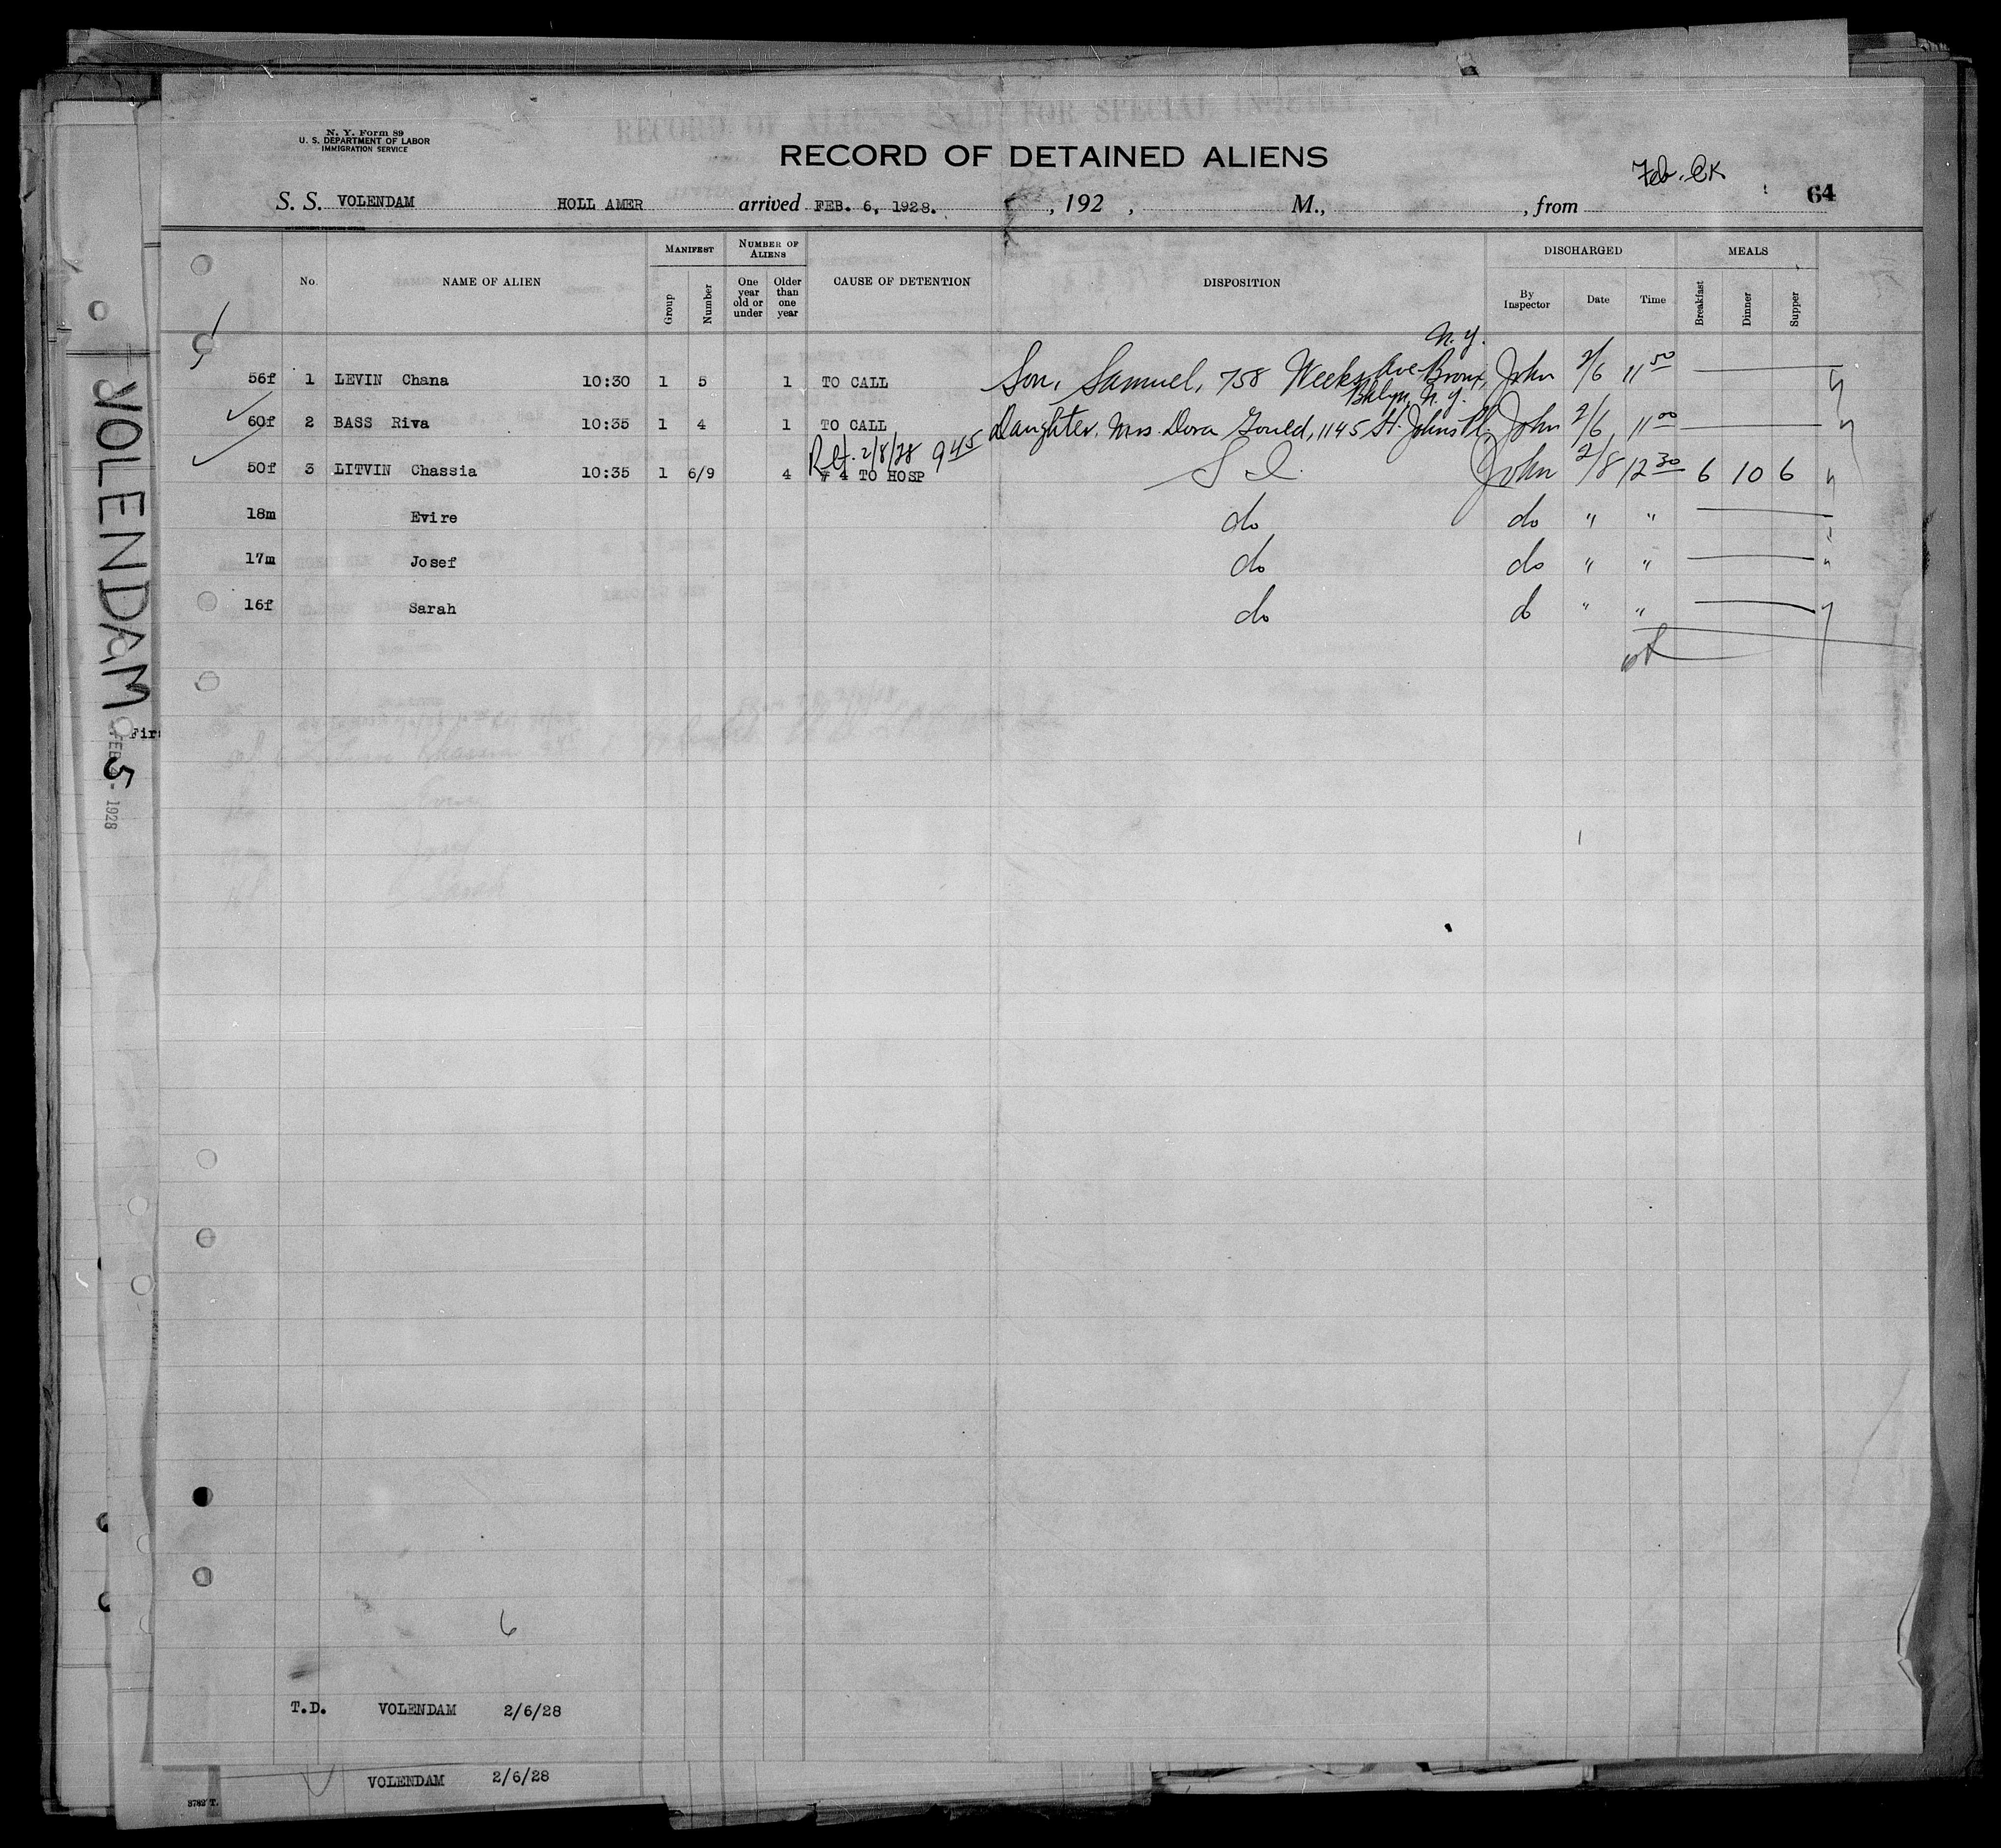 N. Y. Form 89
U. S. DEPARTMENT OF LABOR
IMMIGRATION SERVICE
RECORD OF ALIENS HELD FOR SPECIAL INQUIRY
RECORD OF DETAINED ALIENS
Feb.
64
S. S. VOLENDAM HOLL AMER arrived FEB. 6, 1928. , 192 , M., , from
No. NAME OF ALIEN MANIFEST Group Number NUMBER OF ALIENS One year old or under Older than one year CAUSE OF DETENTION DISPOSITION DISCHARGED By Inspector Date Time MEALS Breakfast Dinner Supper
N.Y.
56f 1 LEVIN Chana 10:30 1 5 1 TO CALL Son, Samuel, 758 Weeks Ave Bronx, John 2/6 11 50
Bklyn, N.Y.
60f 2 BASS Riva 10:35 1 4 1 TO CALL Daughter, Mrs. Dora Gould, 1145 St. Johns Pl. John 2/6 11 00
Ret. 2/8/28 9 45
50f 3 LITVIN Chassia 10:35 1 6/9 4 # 4 TO HOSP S I John 2/8 12 30 6 10 6
18m Evire do do " "
17m Josef do do " "
16f Sarah do do " "
6
T.D. VOLENDAM 2/6/28
VOLENDAM 2/6/28
3782 T.
VOLENDAM
FEB 5 - 1928
Fir